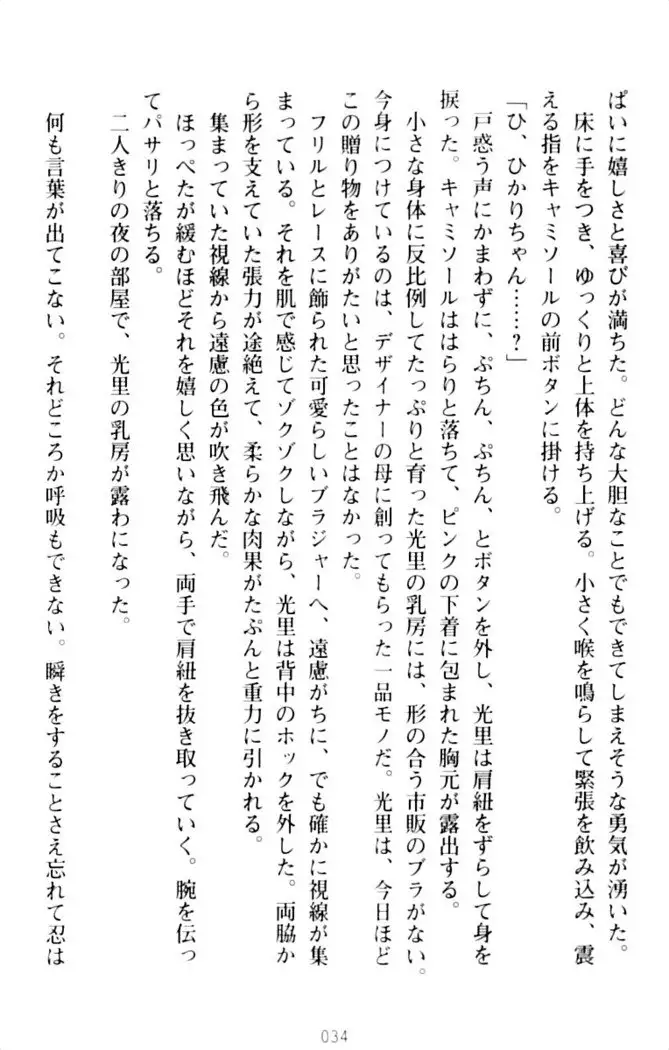 ぱいに嬉しさと喜びが満ちた。どんな大胆なことでもできてしまえそうな勇気が湧いた。
床に手をつき、ゆっくりと上体を持ち上げる。小さく喉を鳴らして緊張を飲み込み、震
える指をキャミソールの前ボタンに掛ける。
「ひ、ひかりちゃん……？」
戸惑う声にかまわずに、ぷちん、ぷちん、とボタンを外し、光里は肩紐をずらして身を
捩った。キャミソールははらりと落ちて、ピンクの下着に包まれた胸元が露出する。
小さな身体に反比例してたっぷりと育った光里の乳房には、形の合う市販のブラがない。
今身につけているのは、デザイナーの母に創ってもらった一品モノだ。光里は、今日ほど
この贈り物をありがたいと思ったことはなかった。
フリルとレースに飾られた可愛らしいブラジャーへ、遠慮がちに、でも確かに視線が集
まっている。それを肌で感じてゾクゾクしながら、光里は背中のホックを外した。両脇か
ら形を支えていた張力が途絶えて、柔らかな肉果がたぷんと重力に引かれる。
集まっていた視線から遠慮の色が吹き飛んだ。
ほっぺたが緩むほどそれを嬉しく思いながら、両手で肩紐を抜き取っていく。腕を伝っ
てパサリと落ちる。
二人きりの夜の部屋で、光里の乳房が露わになった。
何も言葉が出てこない。それどころか呼吸もできない。瞬きをすることさえ忘れて忍は
034